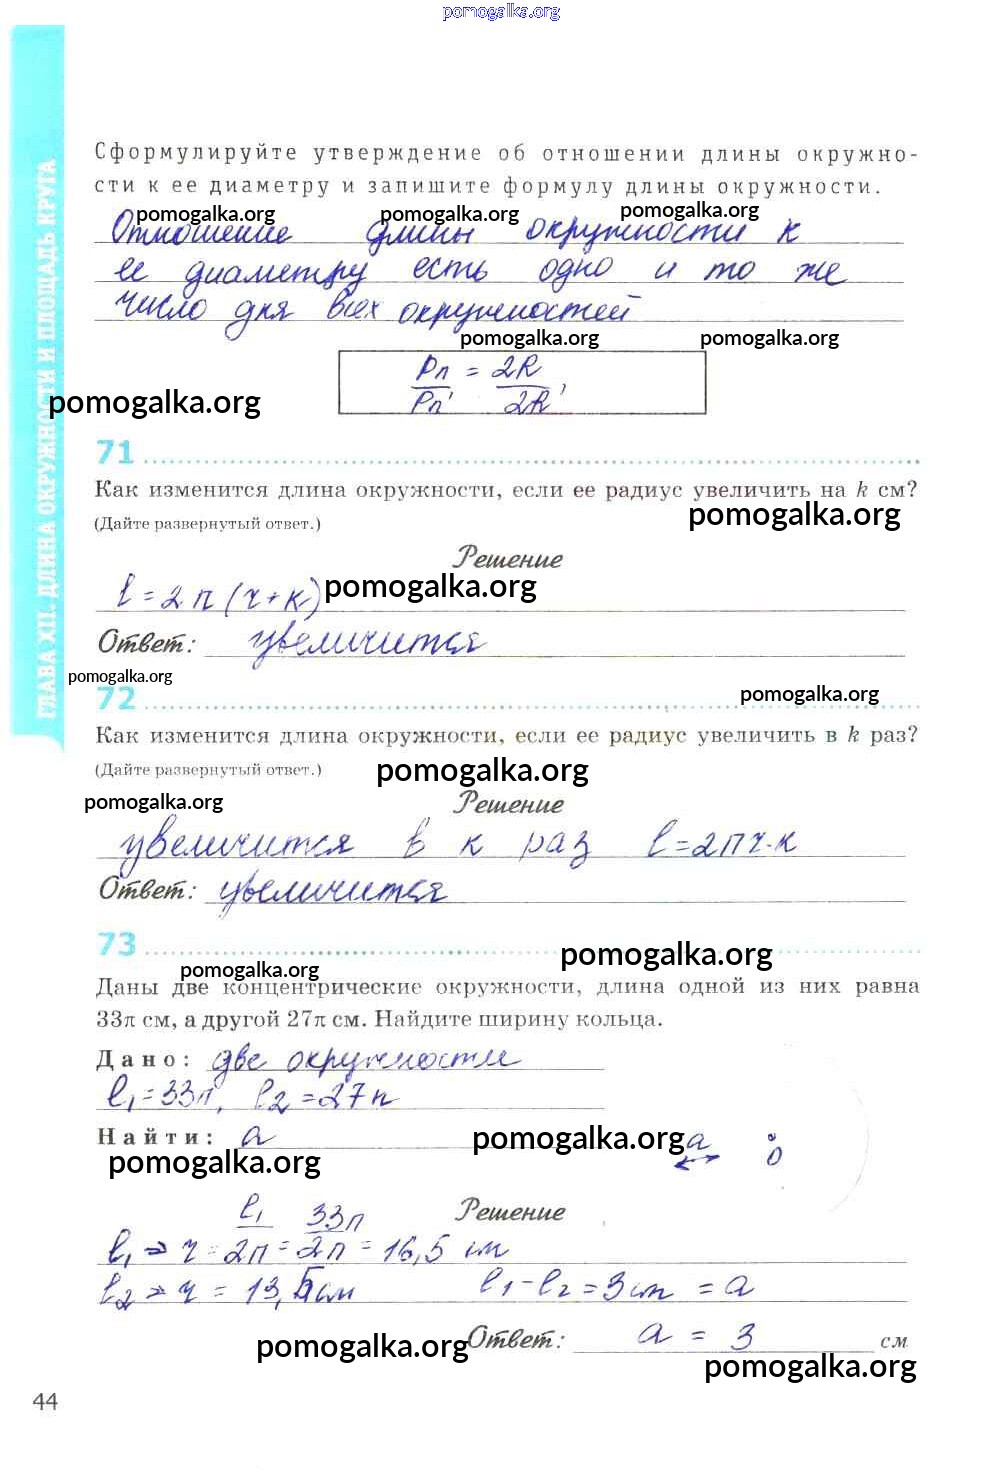 pomogalka.org
ГЛАВА XII. ДЛИНА ОКРУЖНОСТИ И ПЛОЩАДЬ КРУГА
Сформулируйте утверждение об отношении длины окружно-
сти к ее диаметру и запишите формулу длины окружности.
pomogalka.org pomogalka.org pomogalka.org
Отношение длины окружности к
ее диаметру есть одно и то же
число для всех окружностей
pomogalka.org pomogalka.org
Pn = 2R
Pn' 2R'
pomogalka.org
71
Как изменится длина окружности, если ее радиус увеличить на k см?
(Дайте развернутый ответ.)
pomogalka.org
Решение
l = 2п(r+к)
pomogalka.org
Ответ: увеличится
pomogalka.org
72
pomogalka.org
Как изменится длина окружности, если ее радиус увеличить в k раз?
(Дайте развернутый ответ.)
pomogalka.org
pomogalka.org
Решение
увеличится в к раз l=2пr·к
Ответ: увеличится
73
pomogalka.org
pomogalka.org
Даны две концентрические окружности, длина одной из них равна
33π см, а другой 27π см. Найдите ширину кольца.
Дано: две окружности
l₁=33п, l₂=27п
Найти: a
pomogalka.org
a
0
pomogalka.org
Решение
l₁ 33п
l₁ ⇒ r = 2п = 2п = 16,5 см
l₂ ⇒ r = 13,5см l₁-l₂=3см = a
Ответ: a = 3 см
pomogalka.org
pomogalka.org
44